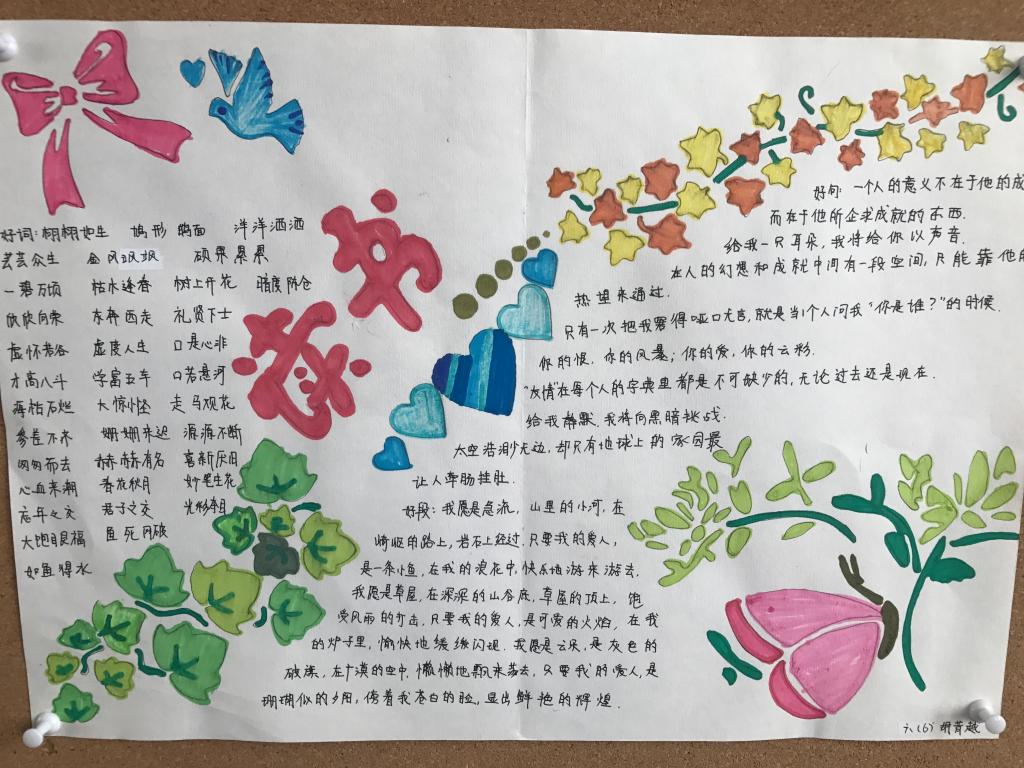 读书
好词:栩栩如生 鸠形鹄面 洋洋洒洒
芸芸众生 金风飒飒 硕果累累
一碧万顷 枯木逢春 树上开花 暗度陈仓
欣欣向荣 东奔西走 礼贤下士
虚怀若谷 虚度人生 口是心非
才高八斗 学富五车 口若悬河
海枯石烂 大惊小怪 走马观花
参差不齐 姗姗来迟 源源不断
匆匆而去 赫赫有名 喜新厌旧
心血来潮 春花秋月 妙笔生花
忘年之交 君子之交 光彩夺目
大饱眼福 鱼死网破
如鱼得水
好句:一个人的意义不在于他的成
而在于他所企求成就的东西.
给我一只耳朵,我将给你以声音.
在人的幻想和成就中间有一段空间,只能靠他的
热望来通过.
只有一次把我窘得哑口无言,就是当1个人问我“你是谁?”的时候.
你的恨,你的风暴;你的爱,你的云彩.
“友情”在每个人的字典里都是不可缺少的,无论过去还是现在.
给我静默,我将向黑暗挑战.
太空浩渺无边,却只有地球上的家园最
让人牵肠挂肚.
好段:我愿是急流,山里的小河,在
崎岖的路上,岩石上经过,只要我的爱人,
是一条小鱼,在我的浪花中,快乐地游来游去.
我愿是草屋,在深深的山谷底,草屋的顶上,饱
受风雨的打击,只要我的爱人,是可爱的火焰,在我
的炉子里,愉快地缓缓闪现.我愿是云朵,是灰色的
破旗,在广漠的空中,懒懒地飘来荡去,只要我的爱人,是
珊瑚似的夕阳,傍着我苍白的脸,显出鲜艳的辉煌.
六(6)